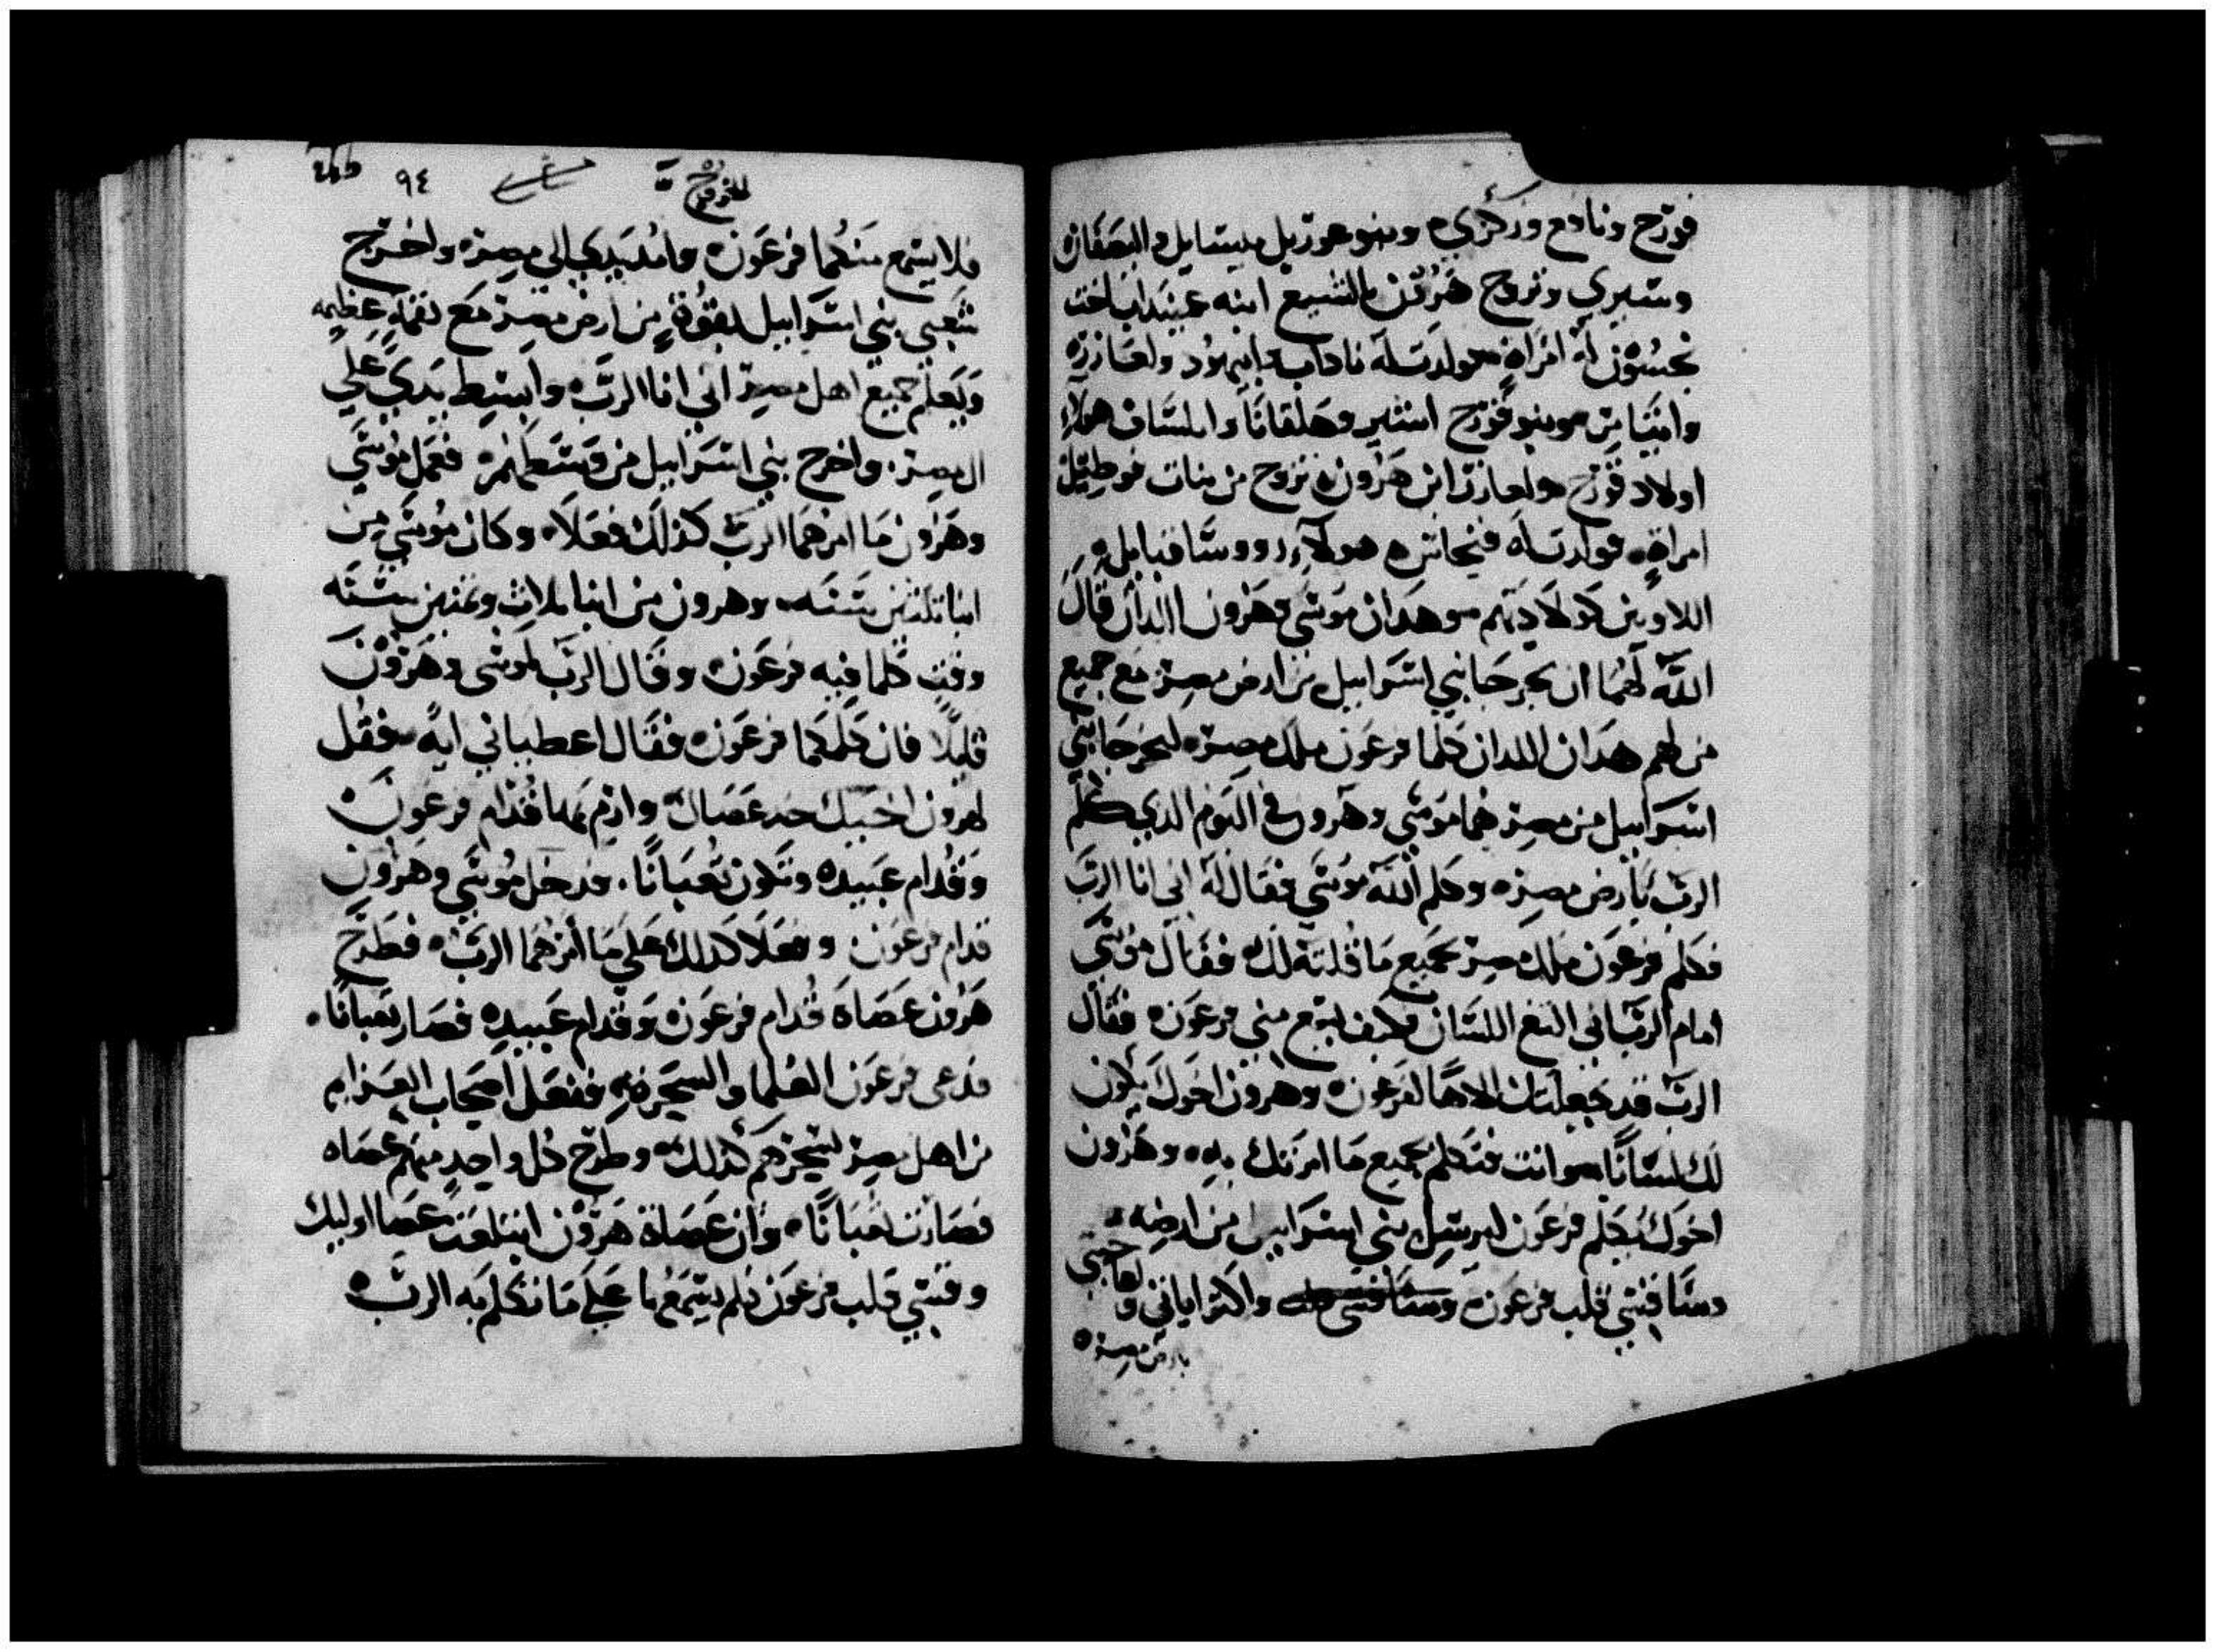 قورح ونادع وزكري ه وبنو عوزيل ميسايل والصفان
وستيري وتزوج هرون باليشبع ابنه عميناداب اخت
نحشون له امراة فولدت له ناداب وابيهود والعازره
وايثامر وبنو قورح اسير وهلقانا وابيساف هولاء
اولاد قورح والعازر ابن هرون تزوج من بنات فوطيل
امراة فولدت له فنحاس ه هولاء رووسا قبايل
اللاويين كولادتهم وهدان موسى وهرون اللدان قال
الله لهما ان يخرجا بني اسرابيل من ارض مصر مع جميع
من لهم هدان اللدان كلما فرعون ملك مصره ليخرجا بني
اسرابيل من مصر هما موسي وهرون في اليوم الدي كلم
الرب بارض مصره وكلم الله موسي فقال له اني انا الرب
فكلم فرعون ملك مصر بجميع ما قلته لك فقال موسي
امام الرب اني التغ اللسان فكيف يسمع مني فرعون ه فقال
الرب قد جعلتك الاهًا لفرعون ه وهرون اخوك يكون
لك لسانًا وانت فتكلم بجميع ما امرتك به ه وهرون
اخوك يكلم فرعون ليرسل بني اسرابيل من ارضه
وسا قسي قلب فرعون ه واكثر اياتي وعجايبي
بارض مصر ه
الخروج
٩٤
فلا يسمع منكما فرعون ه وامد يدي الي مصره واخرج
شعبي بني اسرابيل بقوة من ارض مصر مع نقمة عظيمه
ويعلم جميع اهل مصر اني انا الرب ه وابسط يدي علي
ال مصر واخرج بني اسرابيل من وسطهم ه ففعل موسي
وهرون ما امرهما الرب كذلك فعلا ه وكان موسي من
ابنا تمنين سنه وهرون من ابنا تلات وتمنين سنه
وقت كلما فيه فرعون ه وقال الرب لموسى وهرون
قليلا فان كلمكما فرعون ه فقال اعطياني ايةً فقل
لهرون اخيك خد عصاك وارم بها قدام فرعون ه
وقدام عبيده وتكون تعبانًا. فدخل موسي وهرون
قدام فرعون وفعلا كدلك علي ما امرهما الرب ه فطرح
هرون عصاه قدام فرعون ه وقدام عبيده فصار تعبانًا.
فدعى فرعون العلما والسحره ففعل اصحاب العزايم
من اهل مصر بسحرهم كذلك وطرح كل واحد منهم عصاه
فصارت تعبانًا ه وان عصاة هرون ابتلعت عصا اوليك
وقسي قلب فرعون فلم يسمعها علي ما تكلم به الرب ه